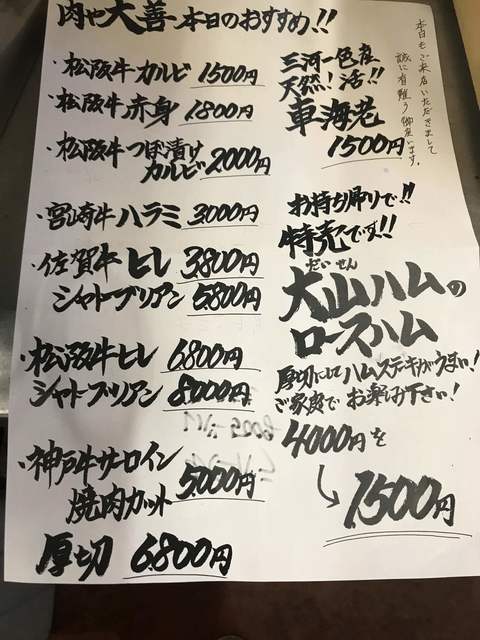 肉や大善 本日のおすすめ!!
・松阪牛カルビ 1500円
・松阪牛赤身 1.800円
・松阪牛つぼ漬け
カルビ 2000円
・宮崎牛ハラミ 3000円
・佐賀牛ヒレ 3.800円
シャトーブリアン 5.800円
・松阪牛ヒレ 6.800円
シャトーブリアン 8000円
・神戸牛サーロイン
焼肉カット 5.000円
厚切 6.800円
本日もご来店いただきまして
誠に有難う御座います。
三河一色産
天然!活!!
車海老
1500円
お持ち帰りで!!
特売です!!
だいせん
大山ハムの
ロースハム
厚切にしてハムステーキがうまい!
ご家庭でお楽しみ下さい!
4000円を
1.500円